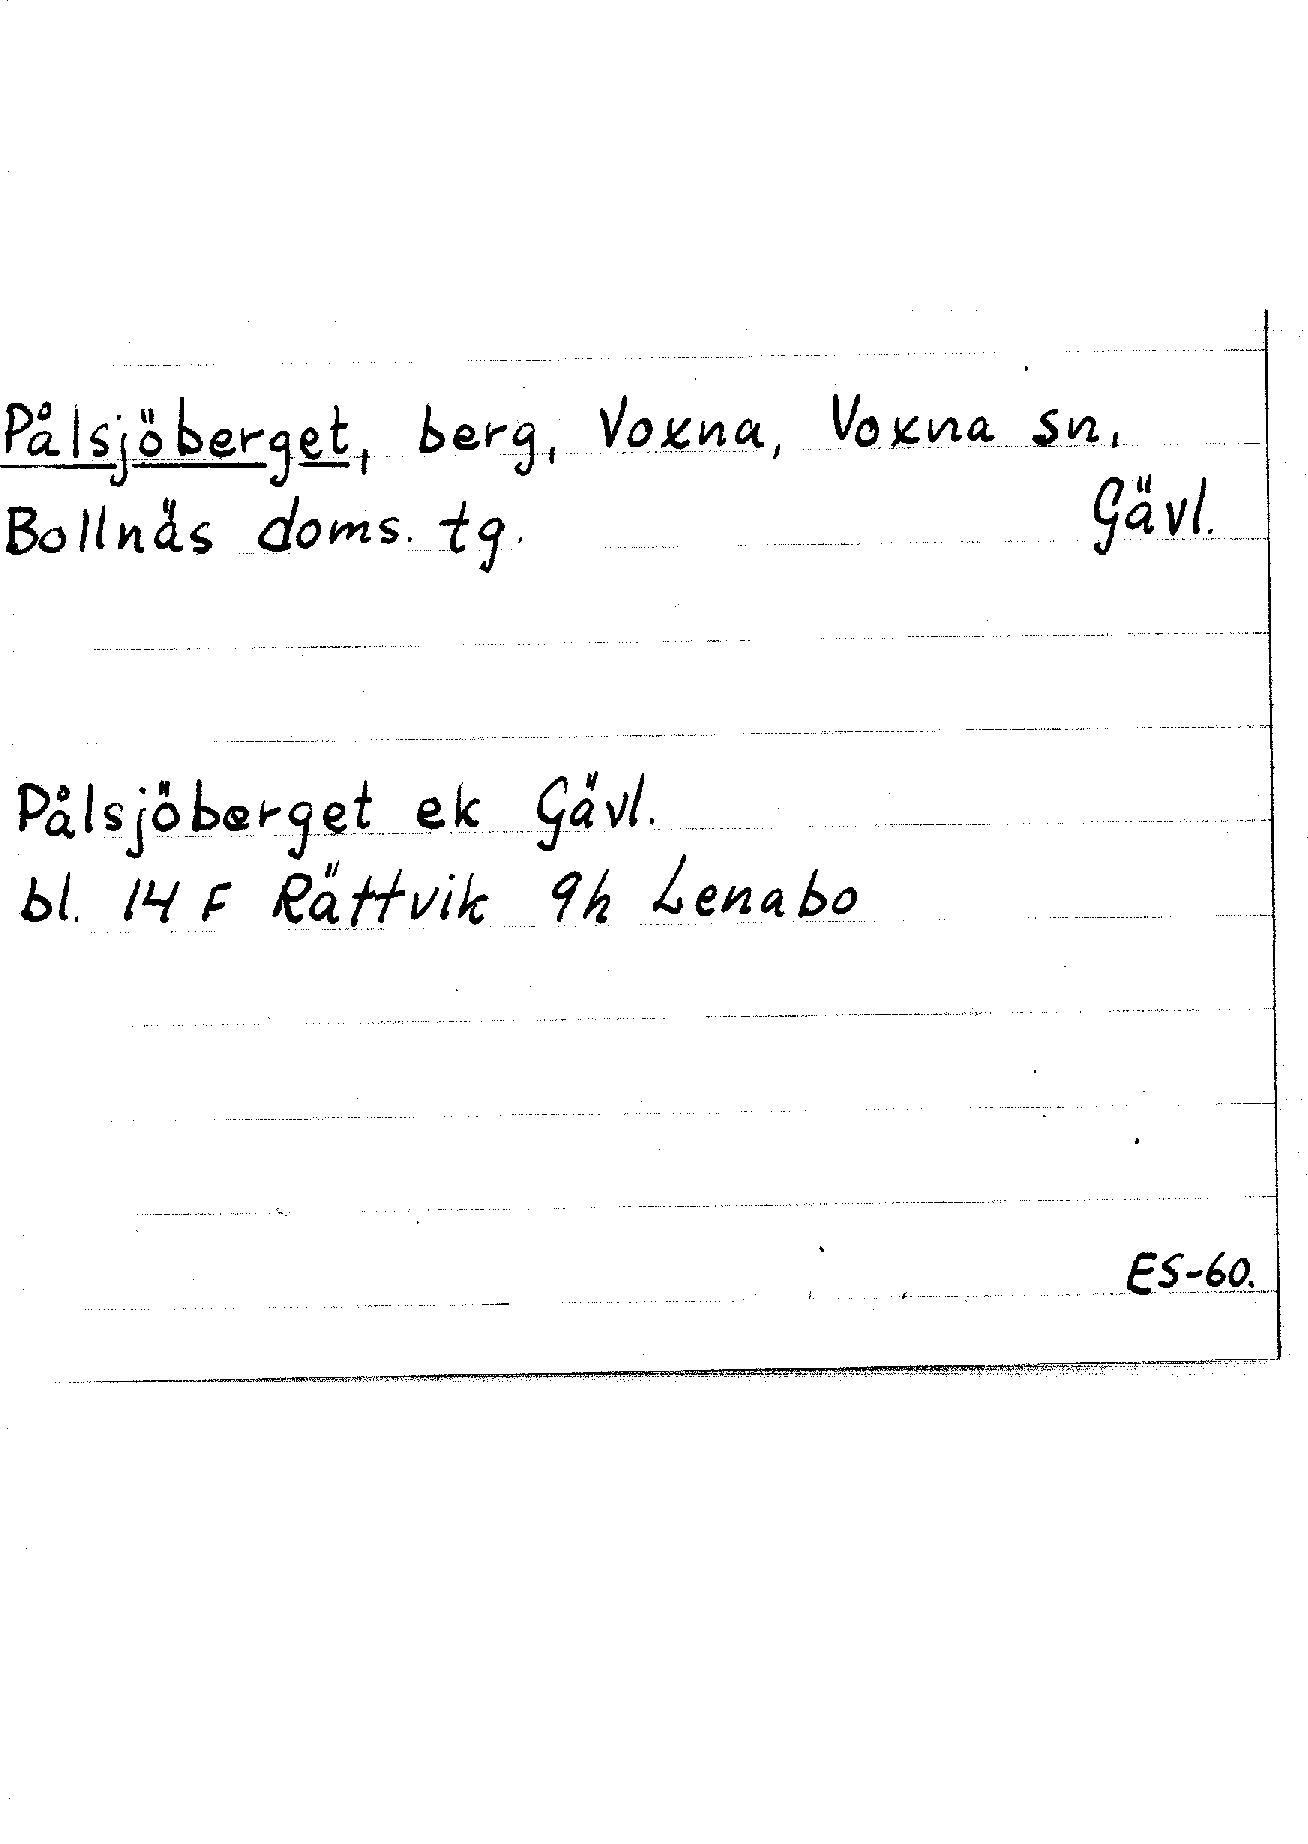 Pålsjöberget, berg, Voxna, Voxna sn,
Bollnäs doms. tg. Gävl.
Pålsjöberget ek Gävl.
bl. 14 F Rättvik 9h Lenabo
ES-60.